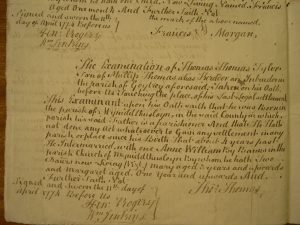 Aged One month And Further Saith Not
Signed and Sworn the 11th
day of April 1774 Before us
Hen: Rogers
Wm Jenkins
the mark of the above named
Francis Morgan,
The Examination of Thomas Thomas Taylor
Son of Phillip Thomas alias Hooker an Intruder in
the parish of Goytrey aforesaid, Taken on his Oath
before the place of his last Legal Settlement
This Examinant upon his Oath saith that he was Born in
the parish of in the said County in which
parish his said Father is a parishioner And that He Hath
not done any Act whatsoever to Gain any Settlement in any
parish or place since his Birth That about years past
He Intermarried with one Anne William by Banns in the
parish Church of by whom he hath Two
Children now Living Viz: Mary aged 3 years and upwards
and Margaret aged One Year and upwards And
Further Saith Not
Signed and Sworn the 11th day of
April 1774 Before Us
Hen: Rogers
Wm Jenkins
Tho: Thomas